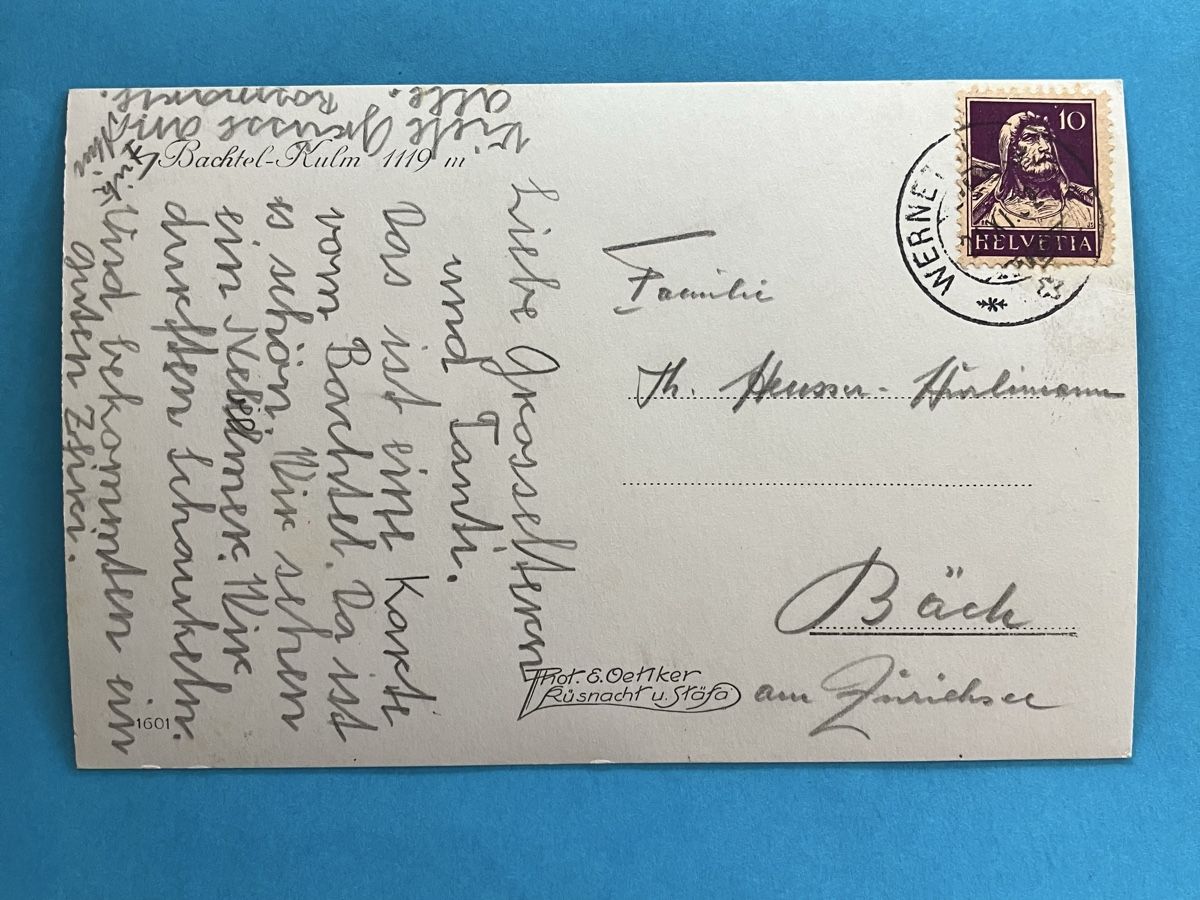 Bachtel-Kulm 1119 m
Liebe Grosseltern
und Tanti.
Das ist eine Karte
vom Bachtel. Da ist
es schön. Wir sehen
ein Nebelmer. Wir
durften schaukeln.
Und bekommten ein
guten Zfiri.
Viele Grüsse an
alle. Rosmarie.
Fritz
Familie
Th. Heusser-Hürlimann
Bäch
am Zürichsee
Phot. E. Oetiker
Küsnacht u. Stäfa
1601
10
HELVETIA
WERNET